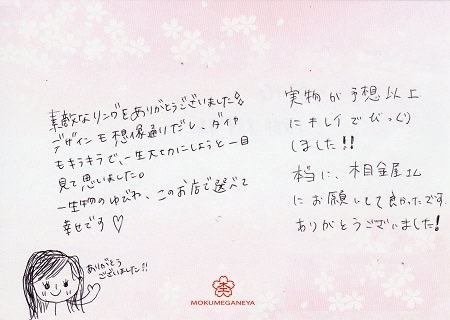 素敵なリングをありがとうございました♢
デザインも想像通りだし、ダイヤ
もキラキラで、一生大切にしようと一目
見て思いました。
一生物のゆびわ、このお店で選べて
幸せです♡
ありがとう
ございました!!
実物が予想以上
にキレイでびっくり
しました!!
本当に、杢目金屋さん
にお願いして良かったです。
ありがとうございました!
MOKUMEGANEYA